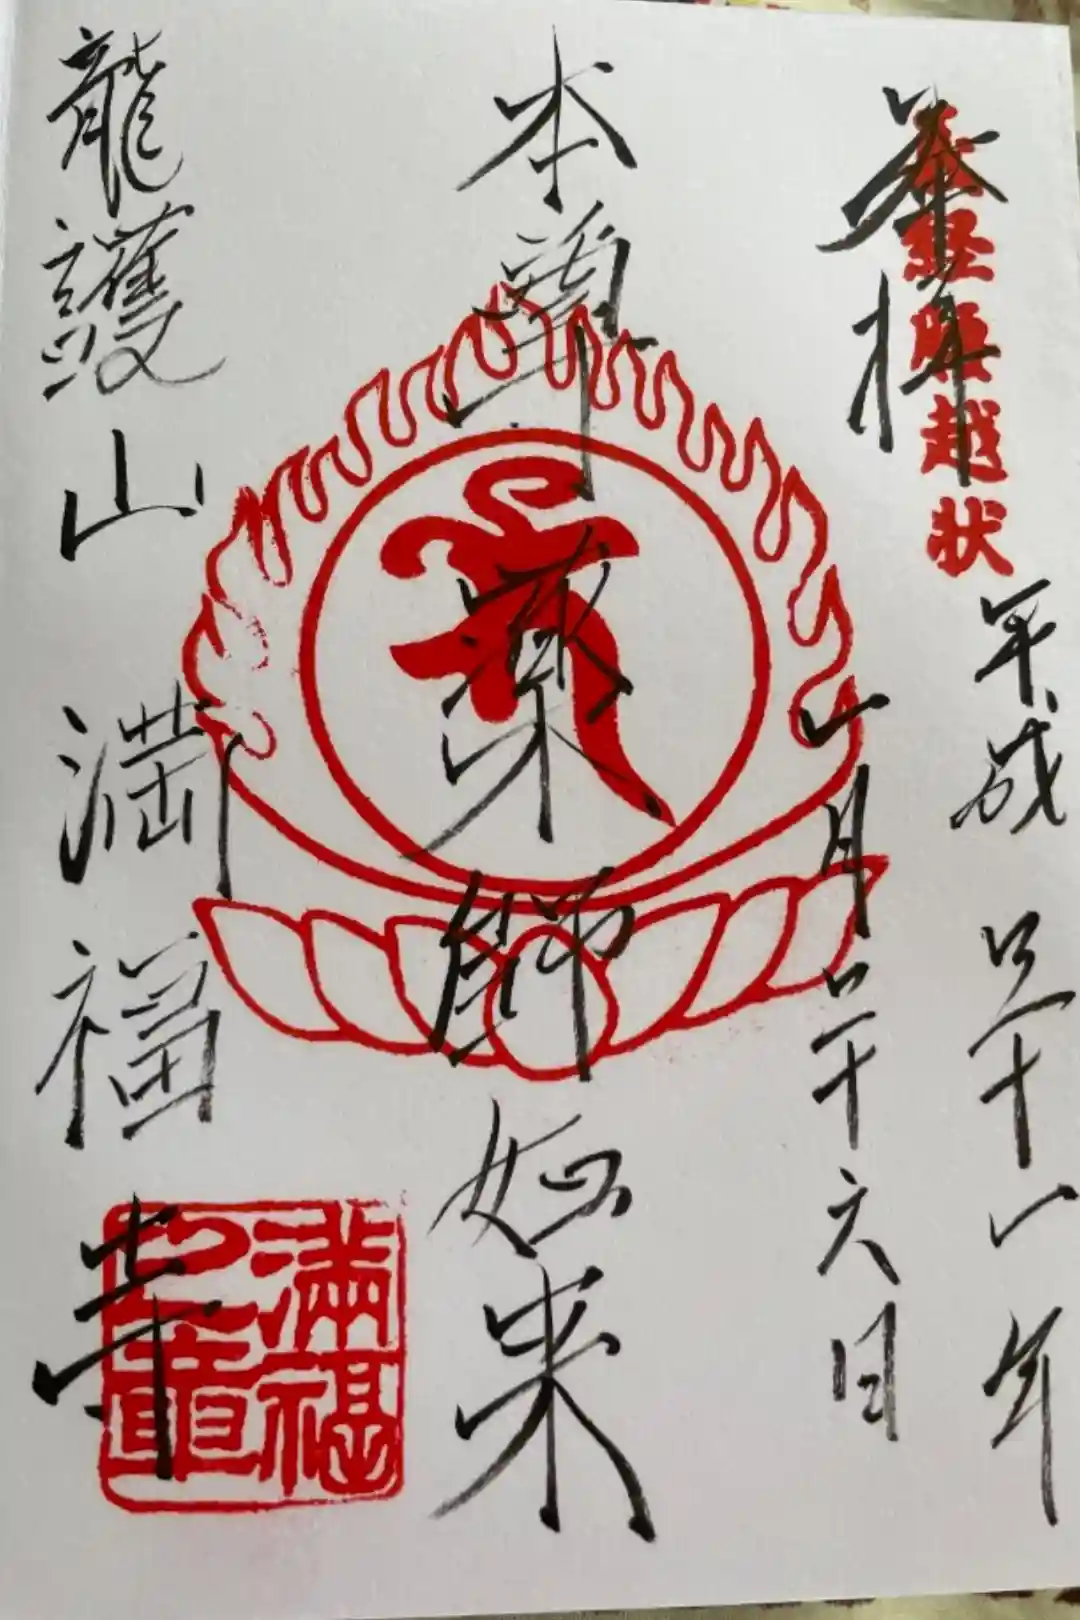 奉拝
義経腰越状
平成三十一年
一月二十六日
本尊薬師如来
龍護山満福寺
満福